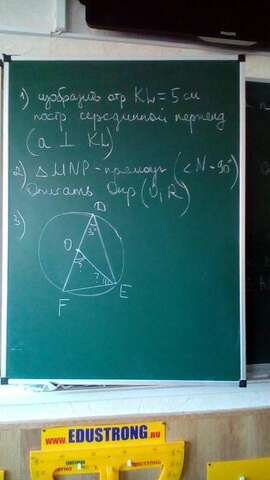 1) изобразить отр KL = 5 см
постр серединной перпенд
(a ⊥ KL)
2) △MNP - прямоуг (<N = 90°)
Описать Окр (O; R)
3)
D
30°
O
?
?
F
E
WWW.EDUSTRONG.RU